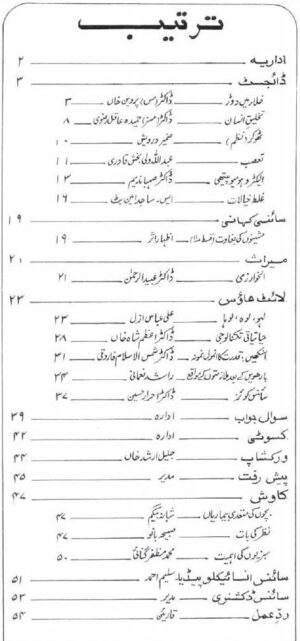 ترتیب
اداریہ ۲
ڈائجسٹ ۳
خلاء میں دوڑ ڈاکٹر (مس) پروین خاں ۳
تخلیق انسان ڈاکٹر (مسز) حمیدہ عاقل رضوی ۸
ٹھوکر (نظم) صغیر درویش ۱۰
تعصب عبداللہ ولی بخش قادری ۱۱
الیکٹرو ہومیوپیتھی ڈاکٹر صہبا ندیم ۱۳
غلط خیالات ایس۔ ساجد امین بٹ ۱۶
سائنسی کہانی ۱۹
مشینوں کی بغاوت اظہار اثر ۱۹
میراث ۲۱
الخوارزمی ڈاکٹر عبید الرحمٰن ۲۱
لائٹ ہاؤس ۲۳
لہو، لوہ، لوہا علی عباس ازل ۲۳
حیاتیاتی ٹکنالوجی ڈاکٹر اعظم شاہ خاں ۲۸
آنکھیں: قدرت کا انمول نمونہ ڈاکٹر شمس الاسلام فاروقی ۳۱
بارھویں کے بعد ملازمتوں کے مواقع راشد نعمانی ۳۴
سائنس کوئز ڈاکٹر احرار حسین ۳۷
سوال جواب ادارہ ۳۹
کسوٹی ادارہ ۴۲
ورکشاپ جلیل ارشد خاں ۴۴
پیش رفت مدیر ۴۵
کاوش ۴۷
بچوں کی متعدی بیماریاں شبانہ بیگم ۴۷
نظر کی بات صبیحہ بانو ۴۷
سبزیوں کی اہمیت محمد مظفر گنائی ۵۰
سائنس انسائیکلوپیڈیا سلیم احمد ۵۱
سائنس ڈکشنری مدیر ۵۳
ردعمل قارئین ۵۴